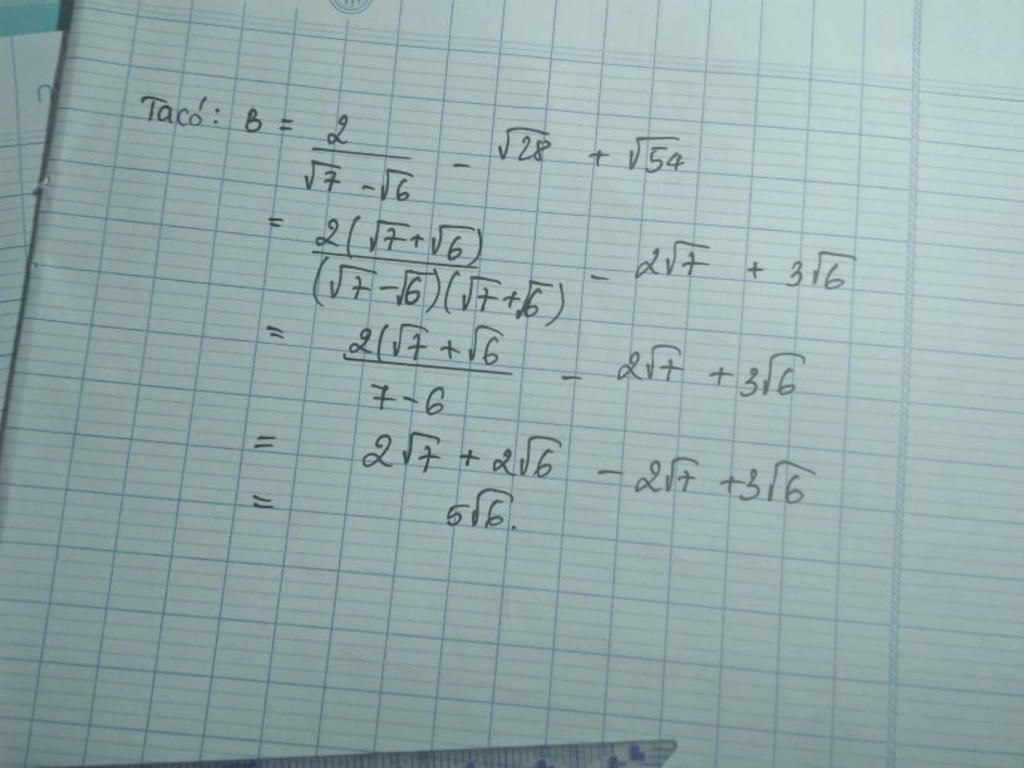 Ta có: B = 2/(√7 - √6) - √28 + √54
= 2(√7+√6)/(√7-√6)(√7+√6) - 2√7 + 3√6
= 2(√7 + √6/7-6 - 2√7 + 3√6
= 2√7 + 2√6 - 2√7 + 3√6
= 5√6.